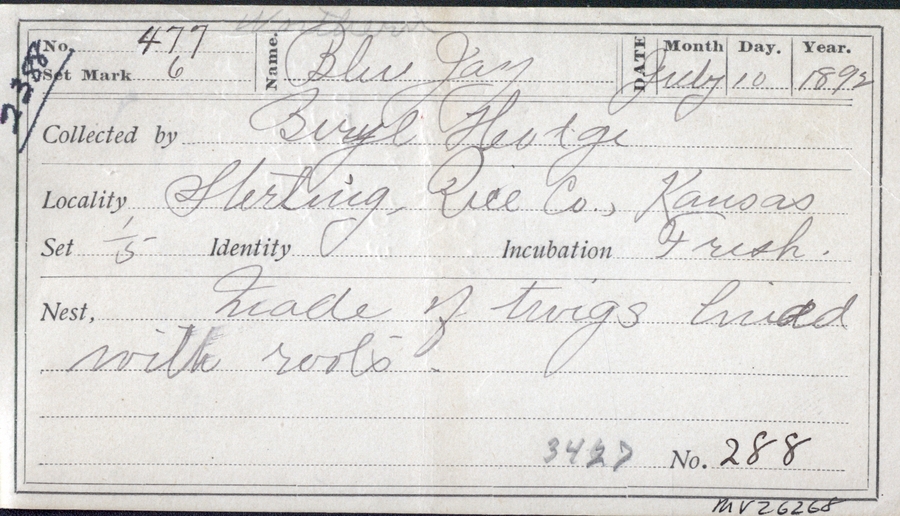 Northern
No. 477 Name. Blue Jay DATE Month Day. Year.
Set Mark 6 July 10 1892
2388
Collected by Beryl
Locality Sterling, Rice Co., Kansas
Set 1/5 Identity Incubation Fresh.
Nest, Made of twigs lined
with roots.
3427 No. 288
MV26268